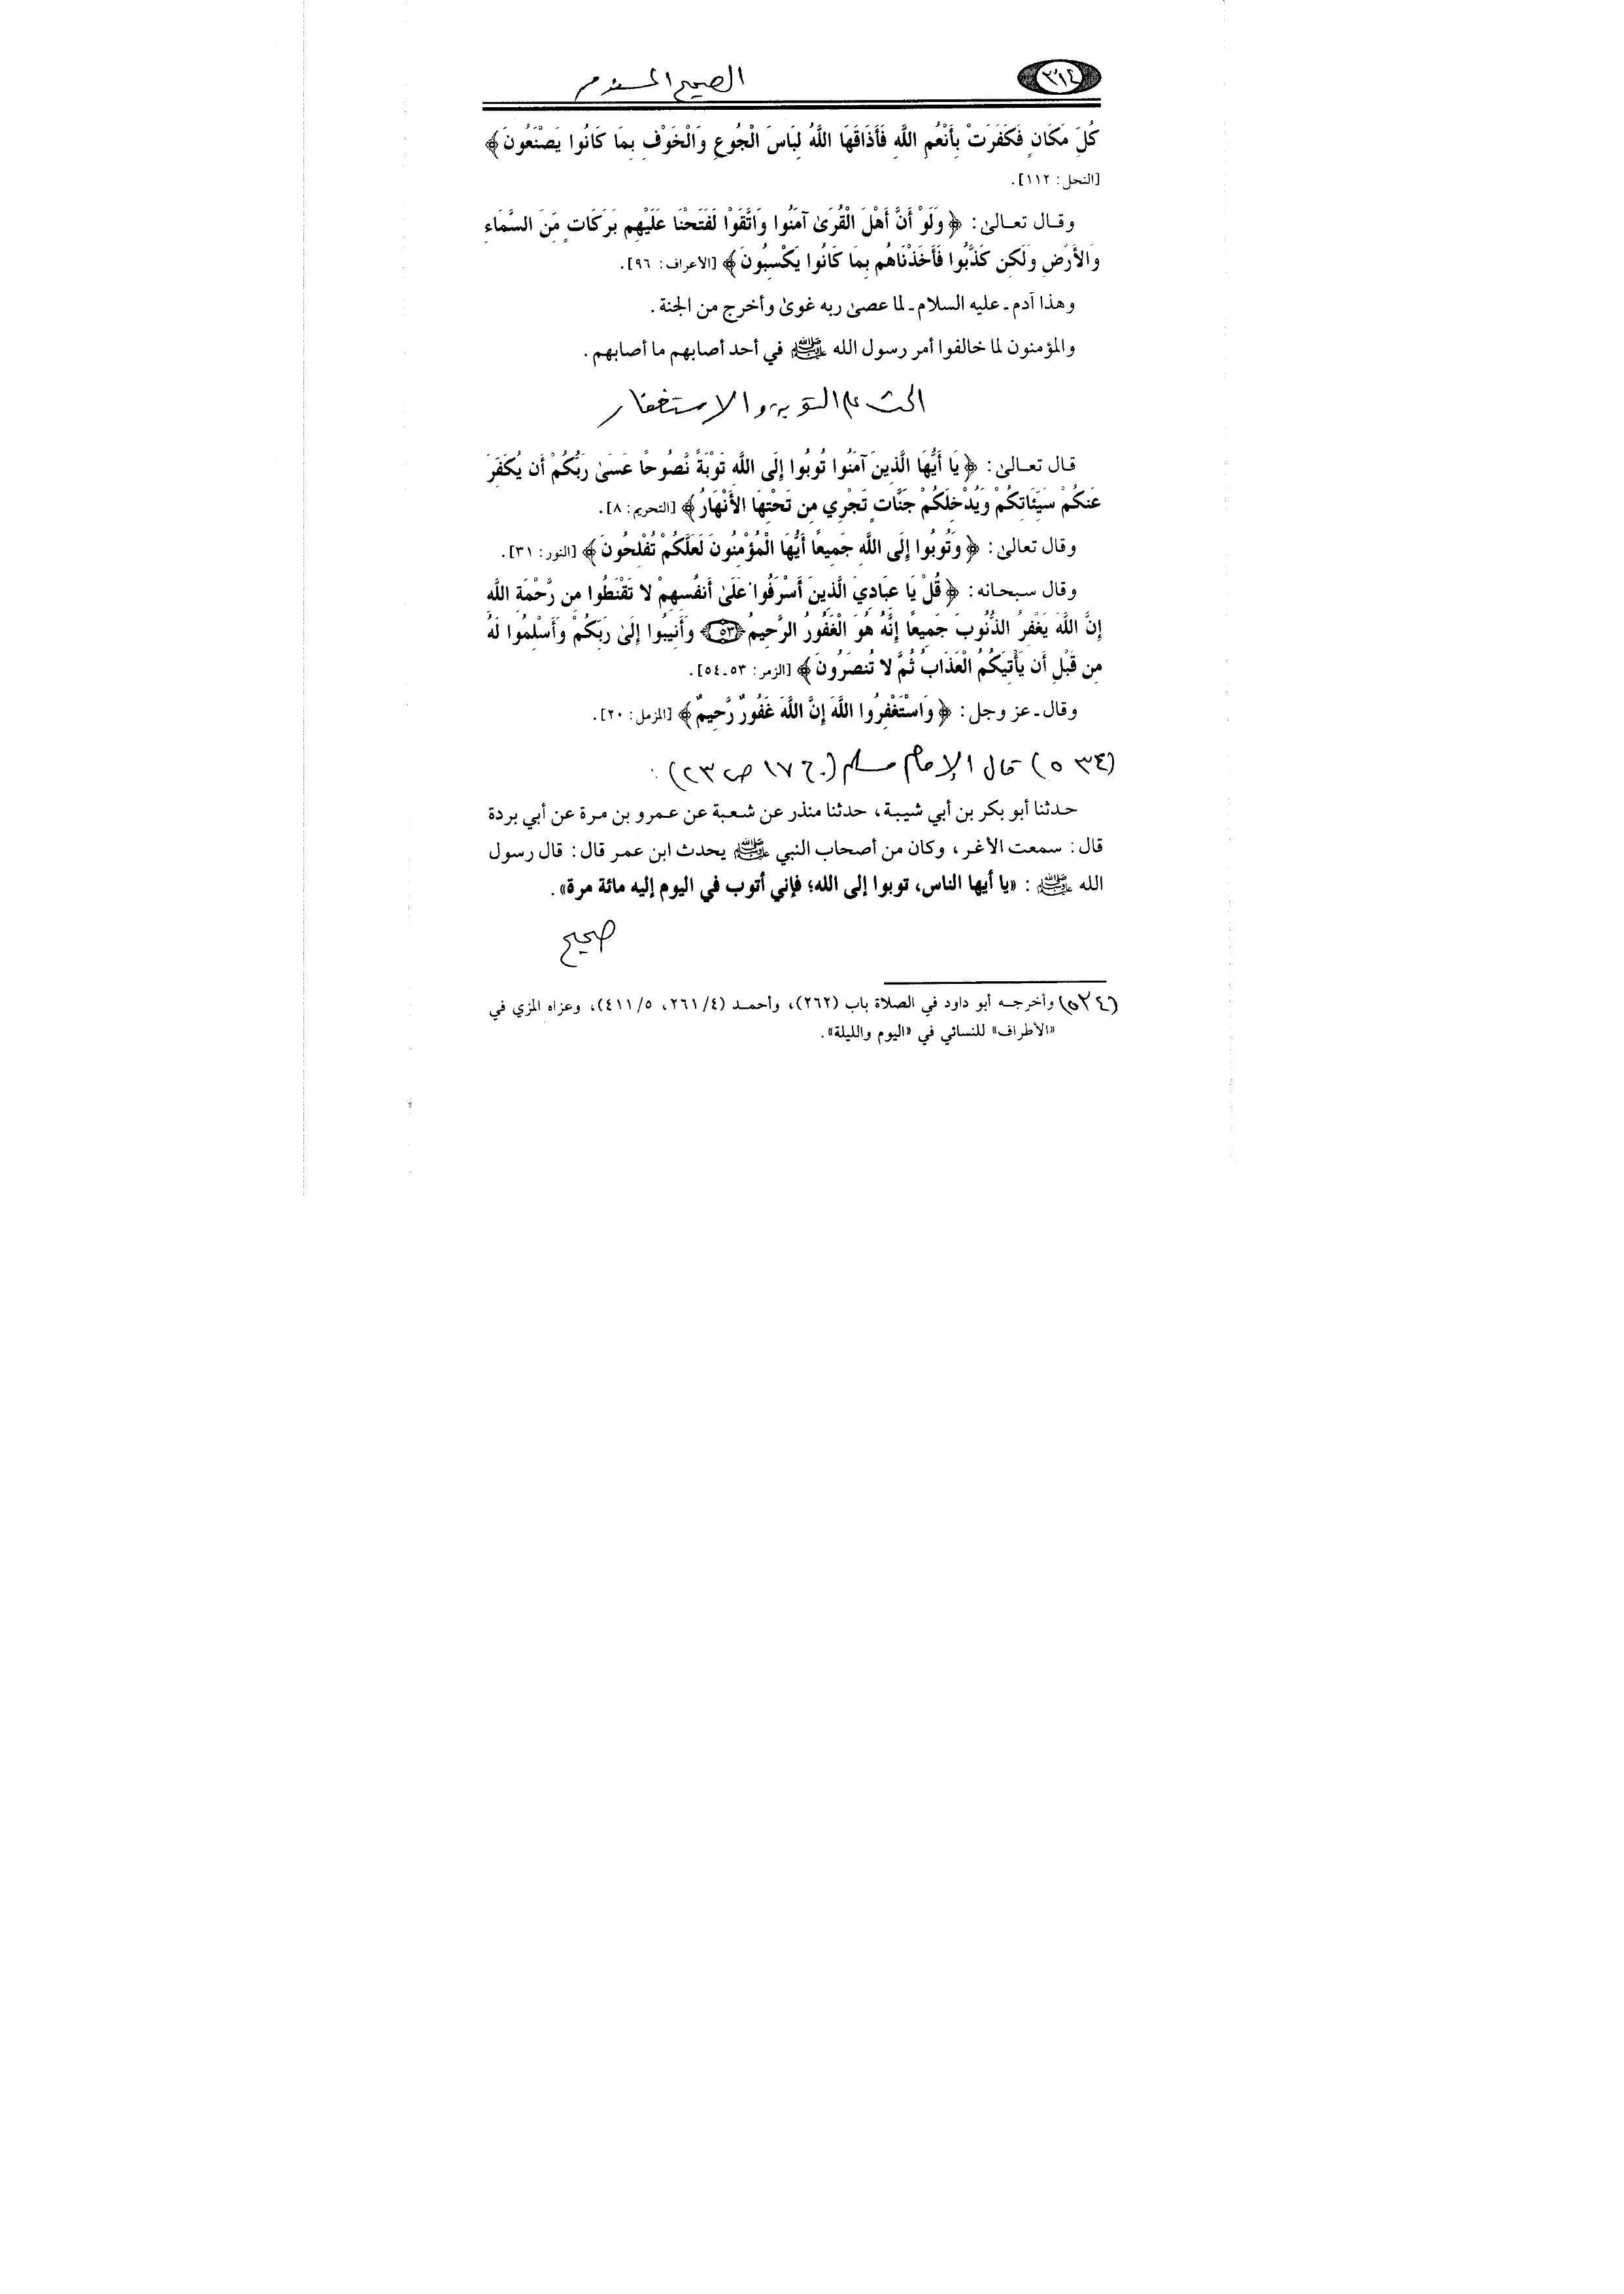 ٣١٤
الصحيح المسند من
كُلِّ مَكَانٍ فَكَفَرَتْ بِأَنْعُمِ اللَّهِ فَأَذَاقَهَا اللَّهُ لِبَاسَ الْجُوعِ وَالْخَوْفِ بِمَا كَانُوا يَصْنَعُونَ﴾
[النحل: ١١٢].
وقال تعالىٰ: ﴿وَلَوْ أَنَّ أَهْلَ الْقُرَىٰ آمَنُوا وَاتَّقَوْا لَفَتَحْنَا عَلَيْهِم بَرَكَاتٍ مِّنَ السَّمَاءِ
وَالأَرْضِ وَلَكِن كَذَّبُوا فَأَخَذْنَاهُم بِمَا كَانُوا يَكْسِبُونَ﴾ [الأعراف: ٩٦].
وهذا آدم ـ عليه السلام ـ لما عصىٰ ربه غوىٰ وأخرج من الجنة.
والمؤمنون لما خالفوا أمر رسول الله ﷺ في أحد أصابهم ما أصابهم.
الحث على التوبة والاستغفار
قال تعالىٰ: ﴿يَا أَيُّهَا الَّذِينَ آمَنُوا تُوبُوا إِلَى اللَّهِ تَوْبَةً نَّصُوحًا عَسَىٰ رَبُّكُمْ أَن يُكَفِّرَ
عَنكُمْ سَيِّئَاتِكُمْ وَيُدْخِلَكُمْ جَنَّاتٍ تَجْرِي مِن تَحْتِهَا الأَنْهَارُ﴾ [التحريم: ٨].
وقال تعالىٰ: ﴿وَتُوبُوا إِلَى اللَّهِ جَمِيعًا أَيُّهَا الْمُؤْمِنُونَ لَعَلَّكُمْ تُفْلِحُونَ﴾ [النور: ٣١].
وقال سبحانه: ﴿قُلْ يَا عِبَادِيَ الَّذِينَ أَسْرَفُوا عَلَىٰ أَنفُسِهِمْ لا تَقْنَطُوا مِن رَّحْمَةِ اللَّهِ
إِنَّ اللَّهَ يَغْفِرُ الذُّنُوبَ جَمِيعًا إِنَّهُ هُوَ الْغَفُورُ الرَّحِيمُ ﴿٥٣﴾ وَأَنِيبُوا إِلَىٰ رَبِّكُمْ وَأَسْلِمُوا لَهُ
مِن قَبْلِ أَن يَأْتِيَكُمُ الْعَذَابُ ثُمَّ لا تُنصَرُونَ﴾ [الزمر: ٥٣ ـ ٥٤].
وقال ـ عز وجل: ﴿وَاسْتَغْفِرُوا اللَّهَ إِنَّ اللَّهَ غَفُورٌ رَّحِيمٌ﴾ [المزمل: ٢٠].
(٥٣٤) قال الإمام مسلم (ج ١٧ ص ٢٣):
حدثنا أبو بكر بن أبي شيبة، حدثنا منذر عن شعبة عن عمرو بن مرة عن أبي بردة
قال: سمعت الأغر، وكان من أصحاب النبي ﷺ يحدث ابن عمر قال: قال رسول
الله ﷺ: «يا أيها الناس، توبوا إلى الله؛ فإني أتوب في اليوم إليه مائة مرة».
صحيح
(٥٣٤) وأخرجه أبو داود في الصلاة باب (٢٦٢)، وأحمد (٢٦١/٤، ٤١١/٥)، وعزاه المزي في
«الأطراف» للنسائي في «اليوم والليلة».